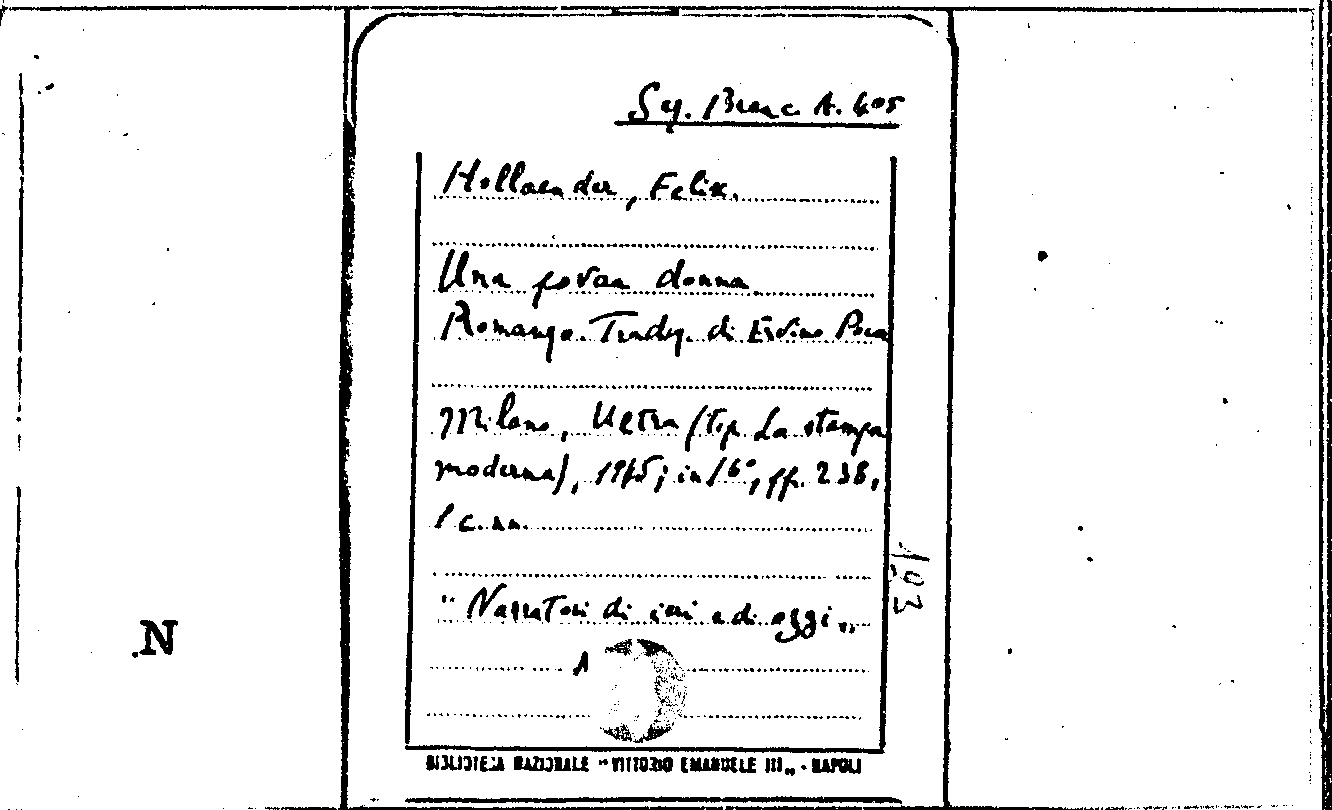 Sez. Branc. A. 405
Hollaender, Felix.
Una povera donna
Romanzo. Traduz. di Ervino Pocar
Milano, Ultra (tip. La stampa
moderna), 1945; in 16°, pp. 238,
1 c. nn.
103
"Narratori di ieri e di oggi"
1
N
BIBLIOTECA NAZIONALE "VITTORIO EMANUELE III" - NAPOLI